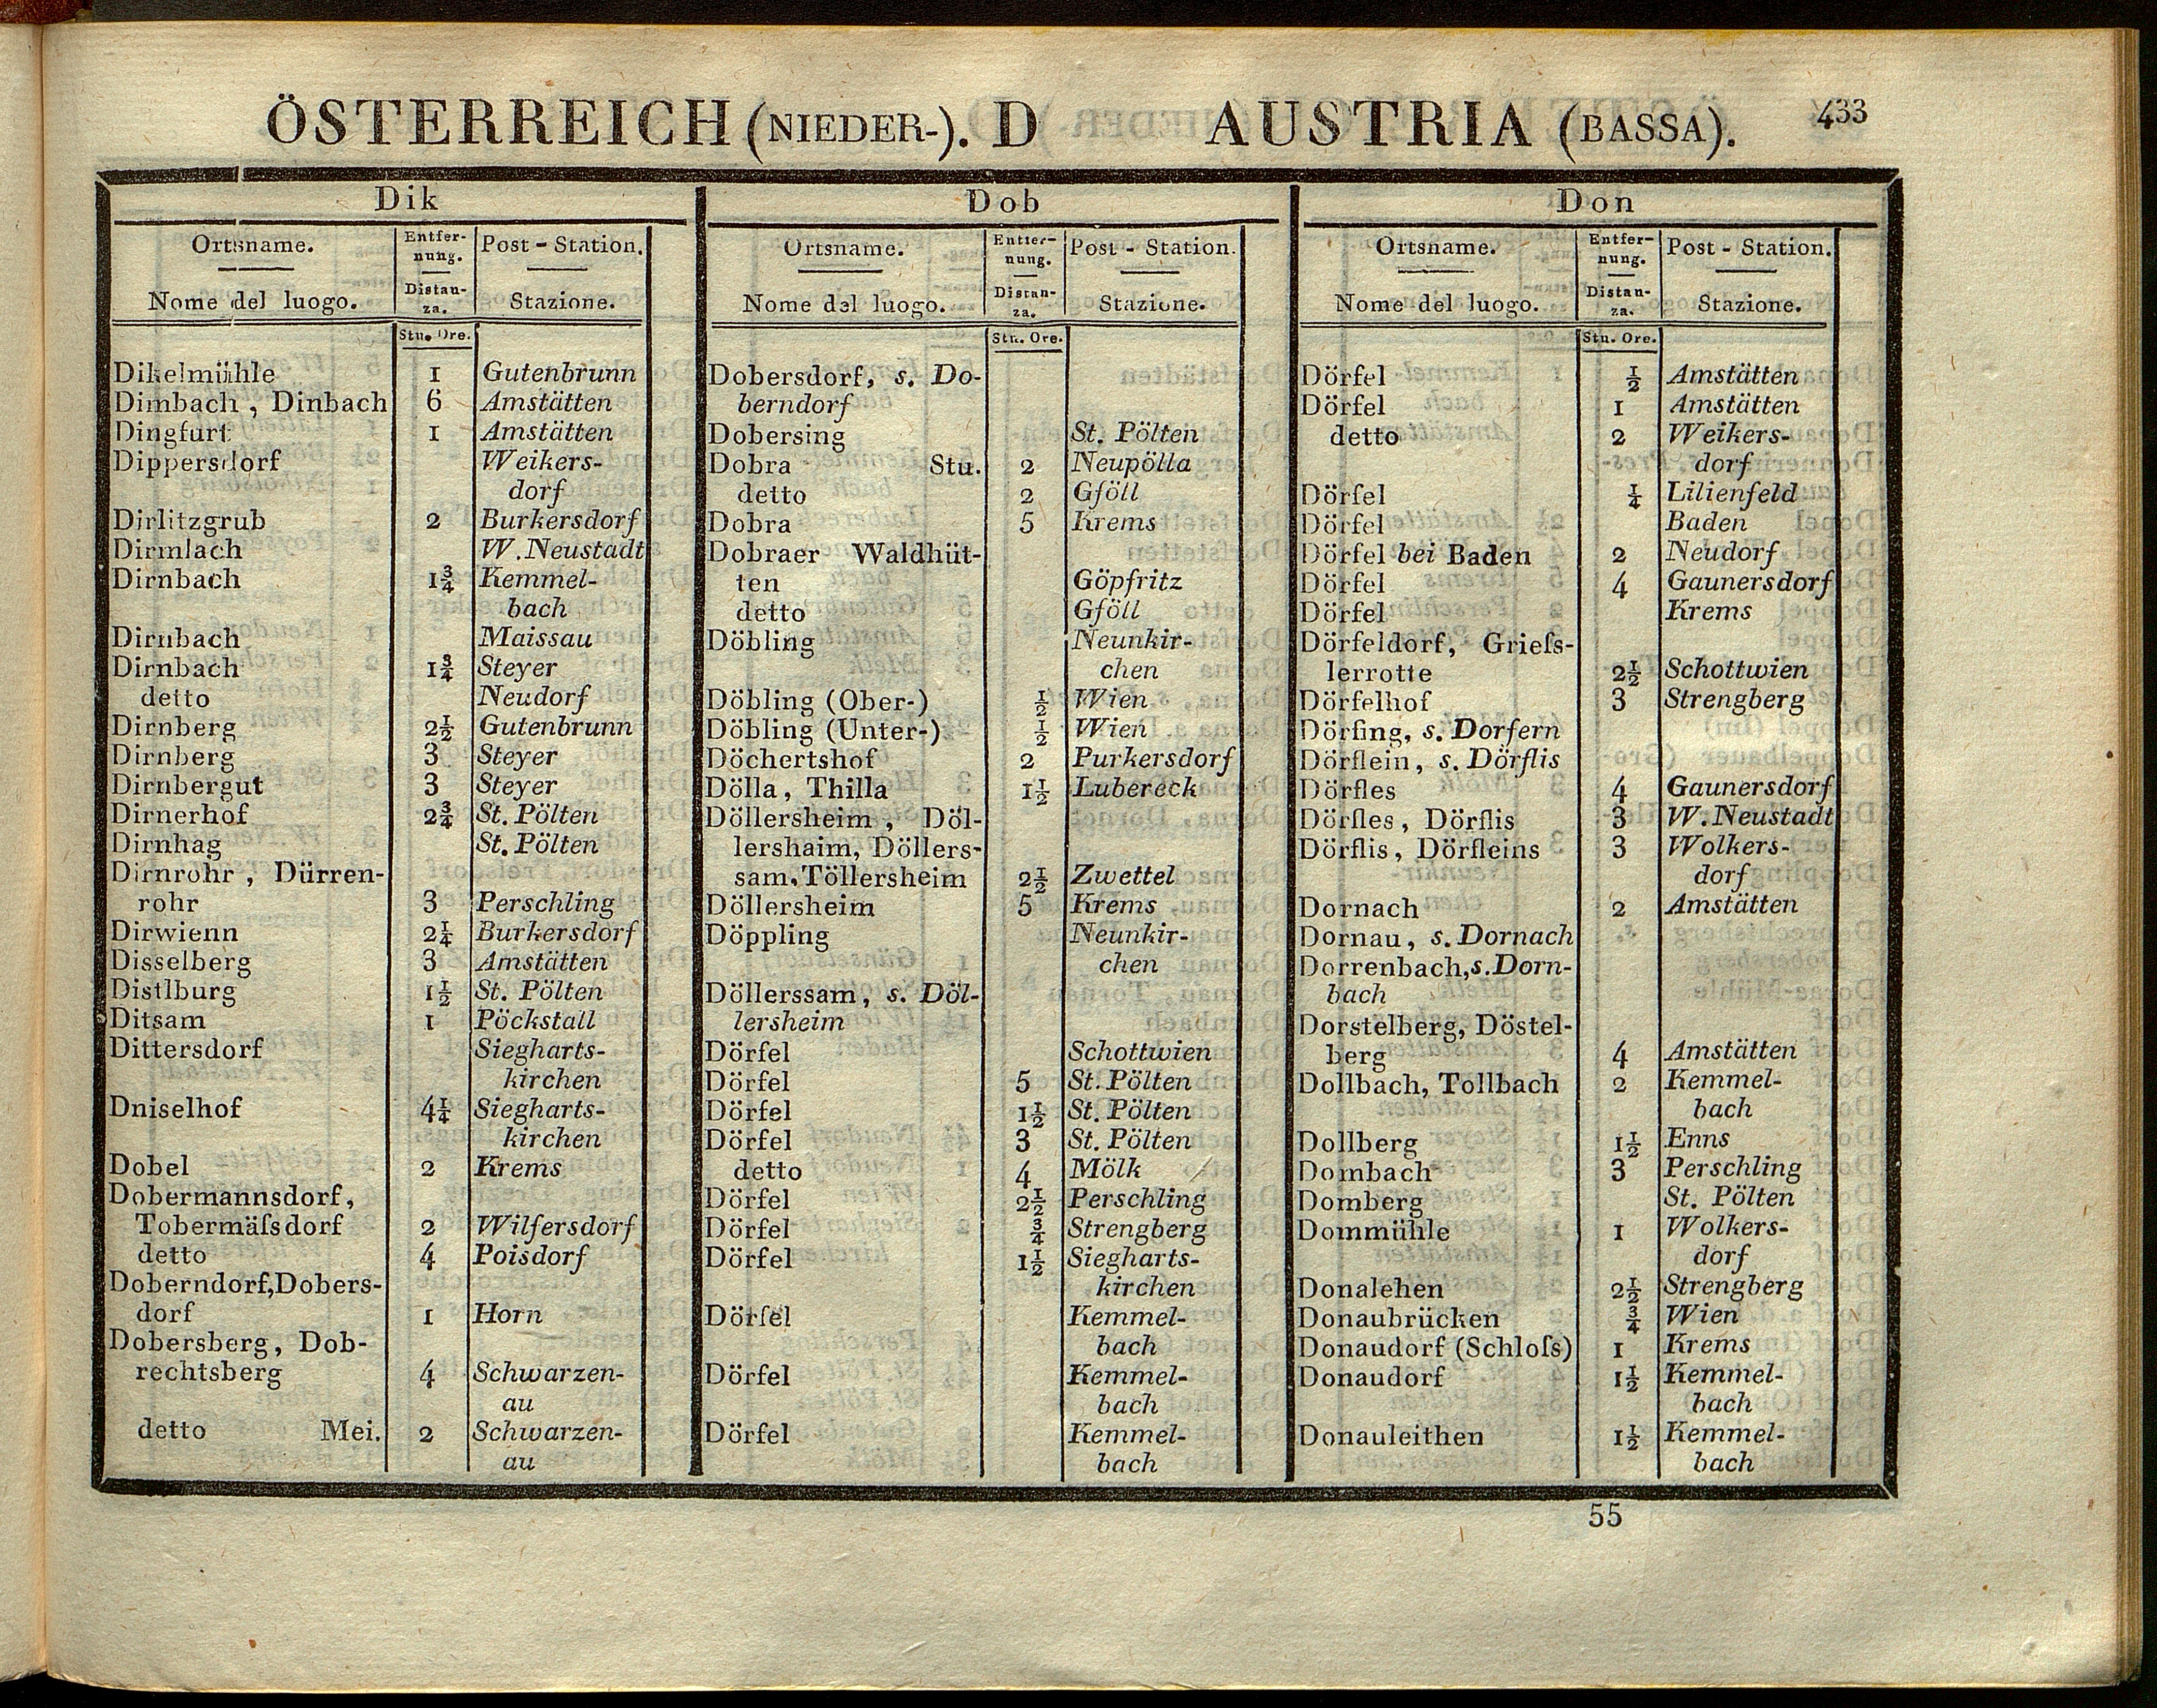 ÖSTERREICH (NIEDER-). D AUSTRIA (BASSA). 433
Dik
Ortsname. Entfer- Post - Station.
nung.
Nome del luogo. Distan- Stazione.
za.
Stu. Ore.
Dikelmühle 1 Gutenbrunn
Dimbach, Dinbach 6 Amstätten
Dingfurt 1 Amstätten
Dippersdorf Weikers-
dorf
Dirlitzgrub 2 Burkersdorf
Dirmlach W. Neustadt
Dirnbach 1¾ Kemmel-
bach
Dirnbach Maissau
Dirnbach 1¾ Steyer
detto Neudorf
Dirnberg 2½ Gutenbrunn
Dirnberg 3 Steyer
Dirnbergut 3 Steyer
Dirnerhof 2¾ St. Pölten
Dirnhag St. Pölten
Dirnrohr, Dürren-
rohr 3 Perschling
Dirwienn 2¼ Burkersdorf
Disselberg 3 Amstätten
Distlburg 1½ St. Pölten
Ditsam 1 Pöckstall
Dittersdorf Siegharts-
kirchen
Dniselhof 4¼ Siegharts-
kirchen
Dobel 2 Krems
Dobermannsdorf,
Tobermäſsdorf 2 Wilfersdorf
detto 4 Poisdorf
Doberndorf, Dobers-
dorf 1 Horn
Dobersberg, Dob-
rechtsberg 4 Schwarzen-
au
detto Mei. 2 Schwarzen-
au
Dob
Ortsname. Entfer- Post - Station.
nung.
Nome del luogo. Distan- Stazione.
za.
Stu. Ore.
Dobersdorf, s. Do-
berndorf
Dobersing St. Pölten
Dobra Stu. 2 Neupölla
detto 2 Gföll
Dobra 5 Krems
Dobraer Waldhüt-
ten Göpfritz
detto Gföll
Döbling Neunkir-
chen
Döbling (Ober-) ½ Wien
Döbling (Unter-) ½ Wien
Döchertshof 2 Purkersdorf
Dölla, Thilla 1½ Lubereck
Döllersheim, Döl-
lershaim, Döllers-
sam, Töllersheim 2½ Zwettel
Döllersheim 5 Krems
Döppling Neunkir-
chen
Döllerssam, s. Döl-
lersheim
Dörfel Schottwien
Dörfel 5 St. Pölten
Dörfel 1½ St. Pölten
Dörfel 3 St. Pölten
detto 4 Mölk
Dörfel 2½ Perschling
Dörfel ¾ Strengberg
Dörfel 1½ Siegharts-
kirchen
Dörfel Kemmel-
bach
Dörfel Kemmel-
bach
Dörfel Kemmel-
bach
Don
Ortsname. Entfer- Post - Station.
nung.
Nome del luogo. Distan- Stazione.
za.
Stu. Ore.
Dörfel ½ Amstätten
Dörfel 1 Amstätten
detto 2 Weikers-
dorf
Dörfel ¼ Lilienfeld
Dörfel Baden
Dörfel bei Baden 2 Neudorf
Dörfel 4 Gaunersdorf
Dörfel Krems
Dörfeldorf, Grieſs-
lerrotte 2½ Schottwien
Dörfelhof 3 Strengberg
Dörfing, s. Dorfern
Dörflein, s. Dörflis
Dörfles 4 Gaunersdorf
Dörfles, Dörflis 3 W. Neustadt
Dörflis, Dörfleins 3 Wolkers-
dorf
Dornach 2 Amstätten
Dornau, s. Dornach
Dorrenbach, s. Dorn-
bach
Dorstelberg, Döstel-
berg 4 Amstätten
Dollbach, Tollbach 2 Kemmel-
bach
Dollberg 1½ Enns
Dombach 3 Perschling
Domberg St. Pölten
Dommühle 1 Wolkers-
dorf
Donalehen 2½ Strengberg
Donaubrücken ¾ Wien
Donaudorf (Schloſs) 1 Krems
Donaudorf 1½ Kemmel-
bach
Donauleithen 1½ Kemmel-
bach
55